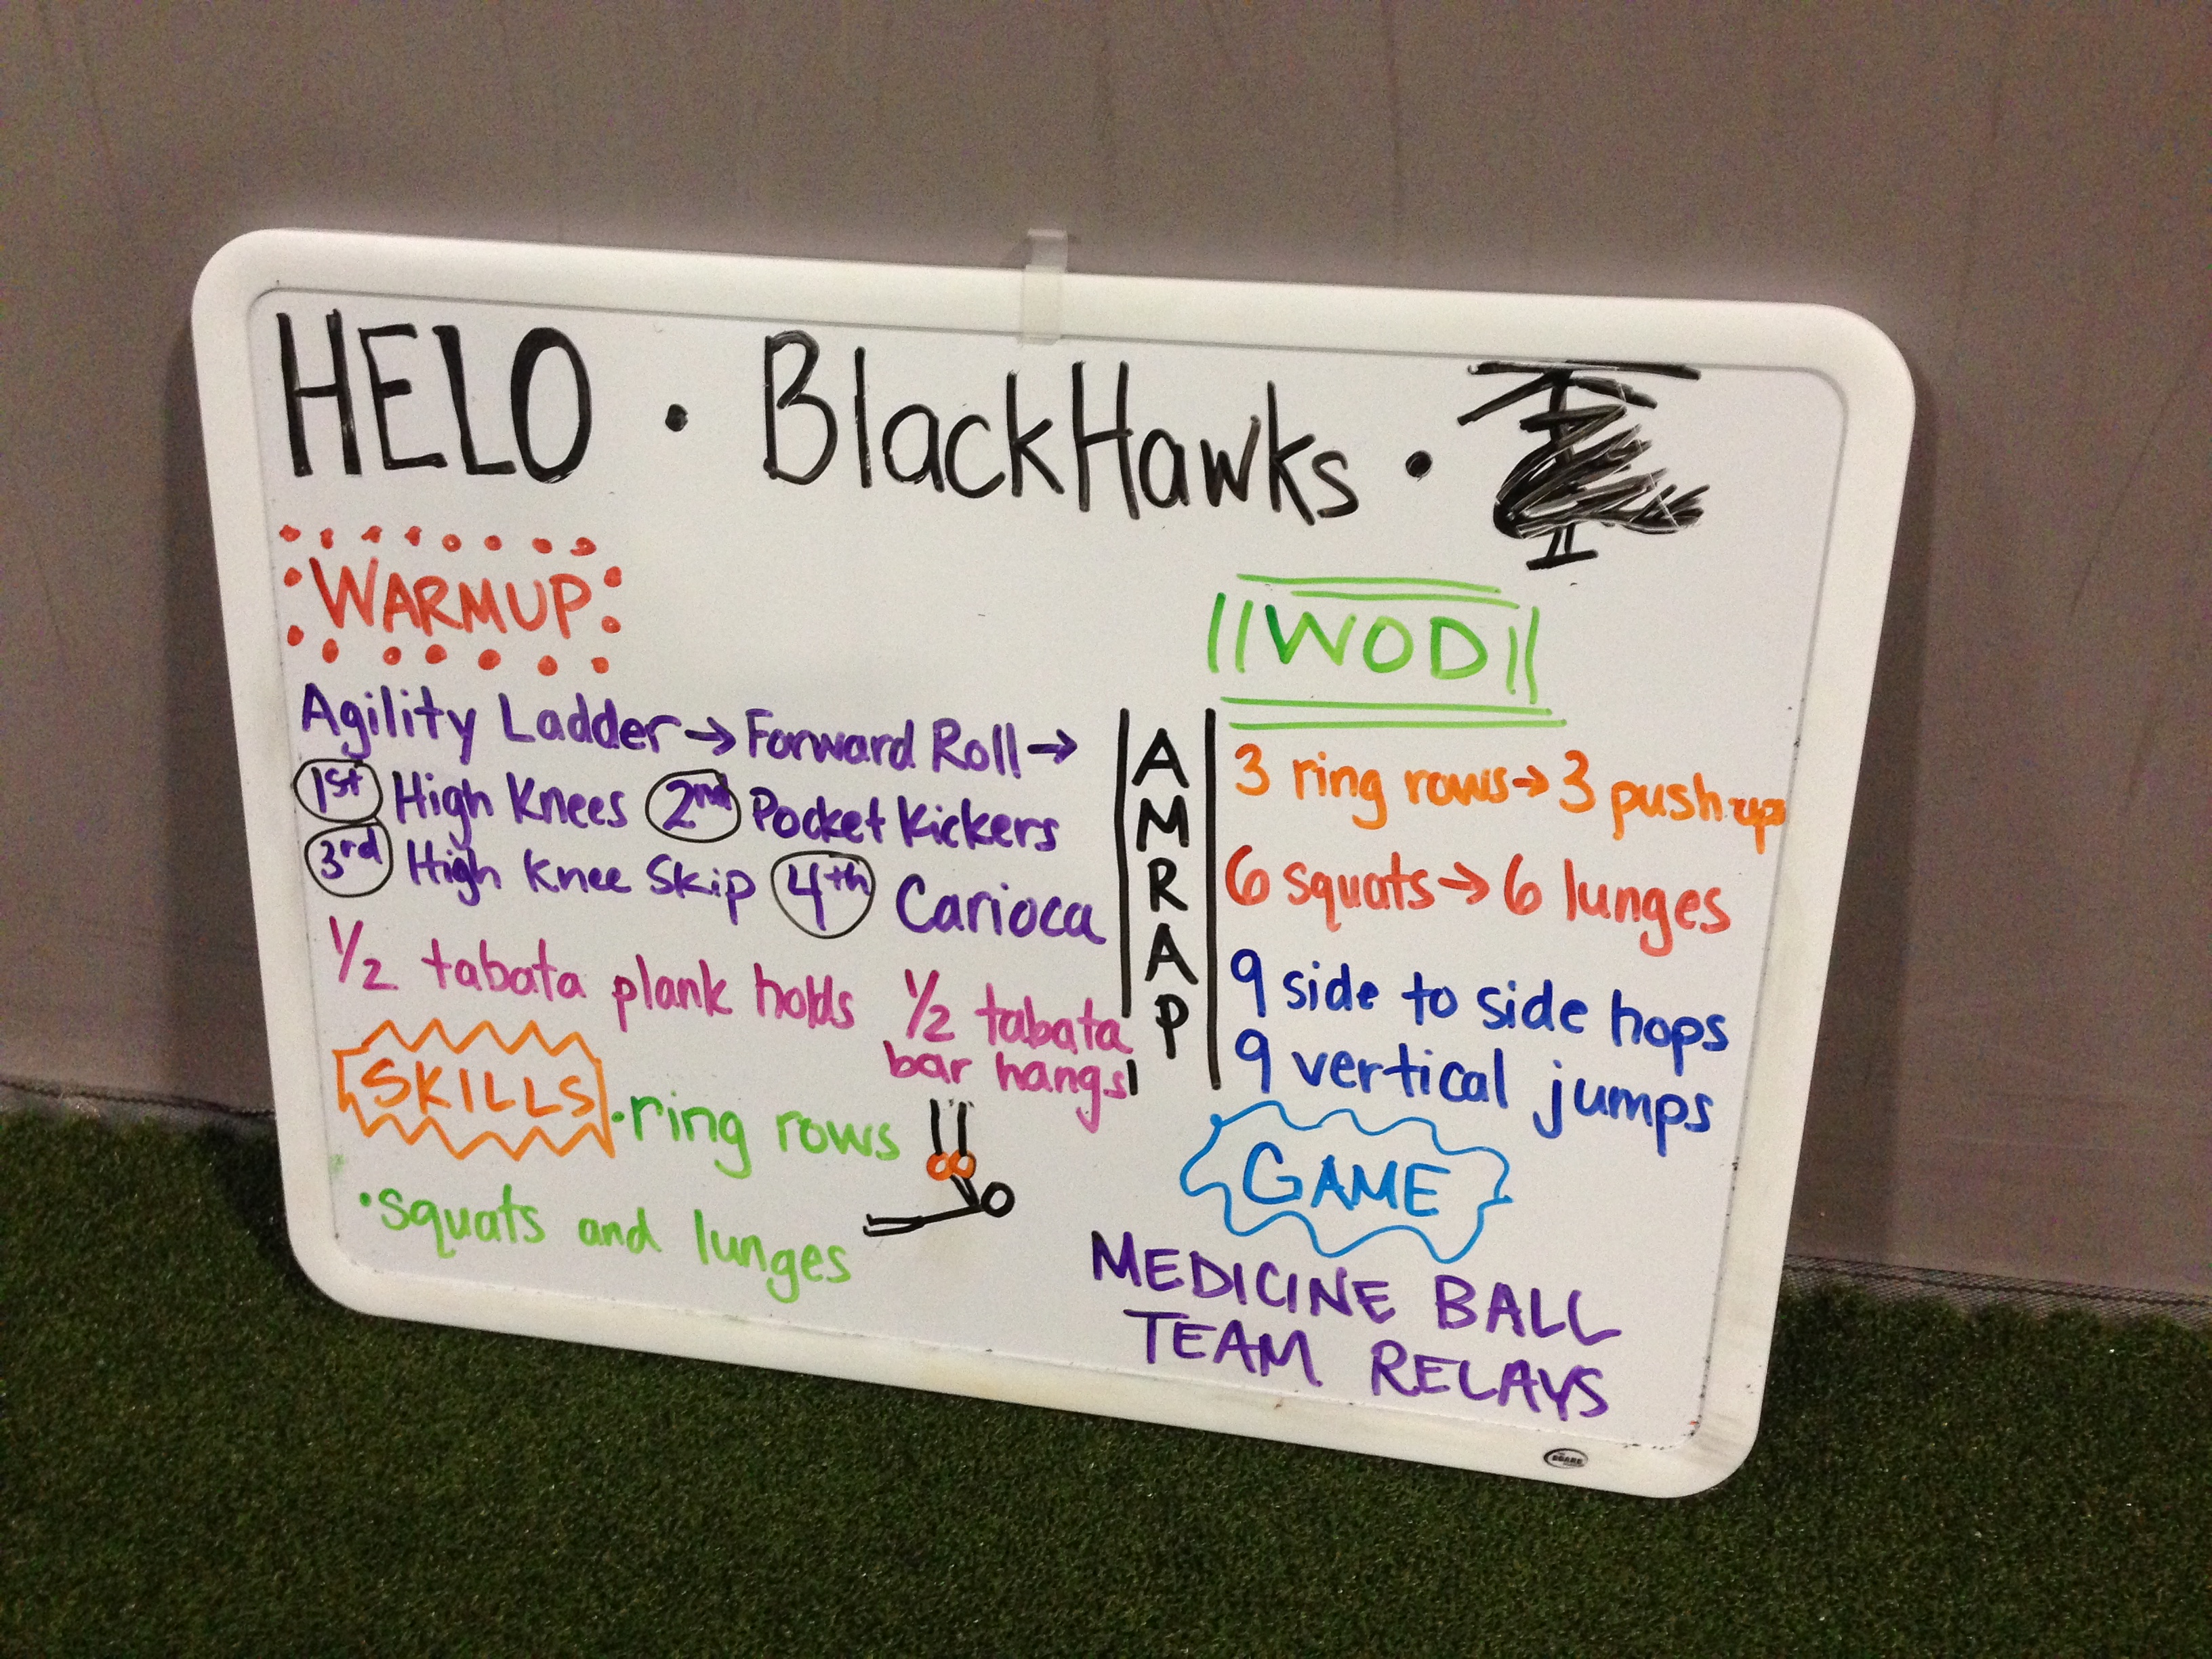 HELO • BlackHawks •
WARMUP
Agility Ladder → Forward Roll →
1st High Knees 2nd Pocket Kickers
3rd High Knee Skip 4th Carioca
1/2 tabata plank holds 1/2 tabata
bar hangs
SKILLS • ring rows
• squats and lunges
WOD
AMRAP
3 ring rows → 3 push ups
6 squats → 6 lunges
9 side to side hops
9 vertical jumps
GAME
MEDICINE BALL
TEAM RELAYS